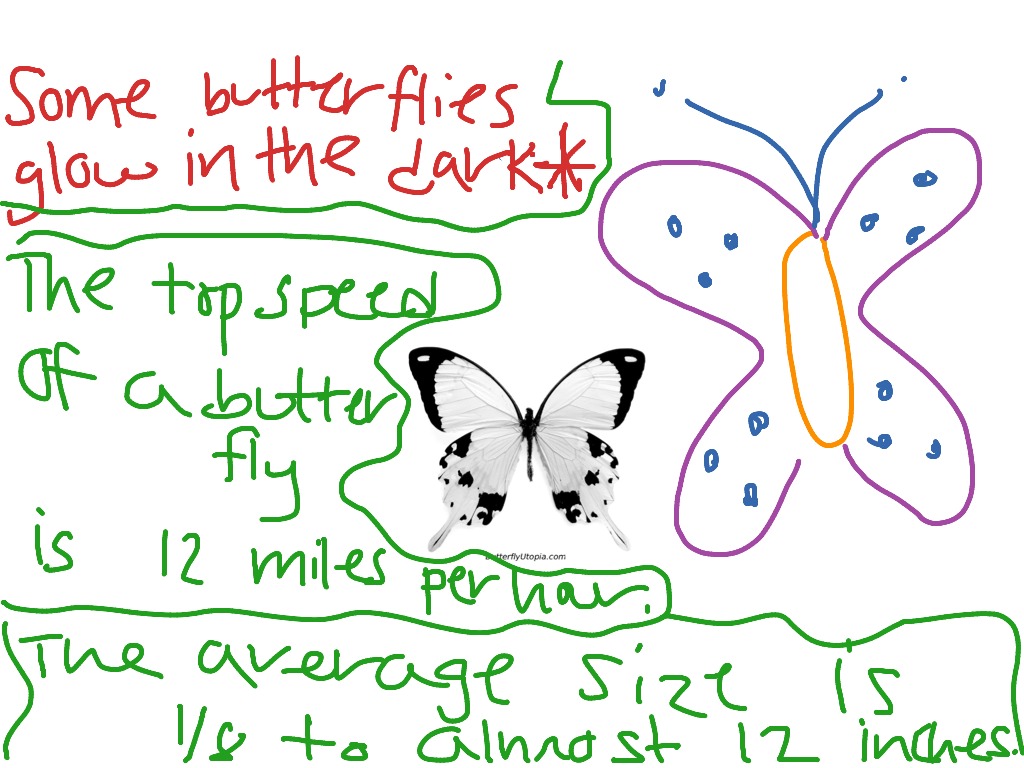 Some butterflies
glow in the dark*
The top speed
of a butter
fly
is 12 miles per hour.
ButterflyUtopia.com
The average size is
1/8 to almost 12 inches.